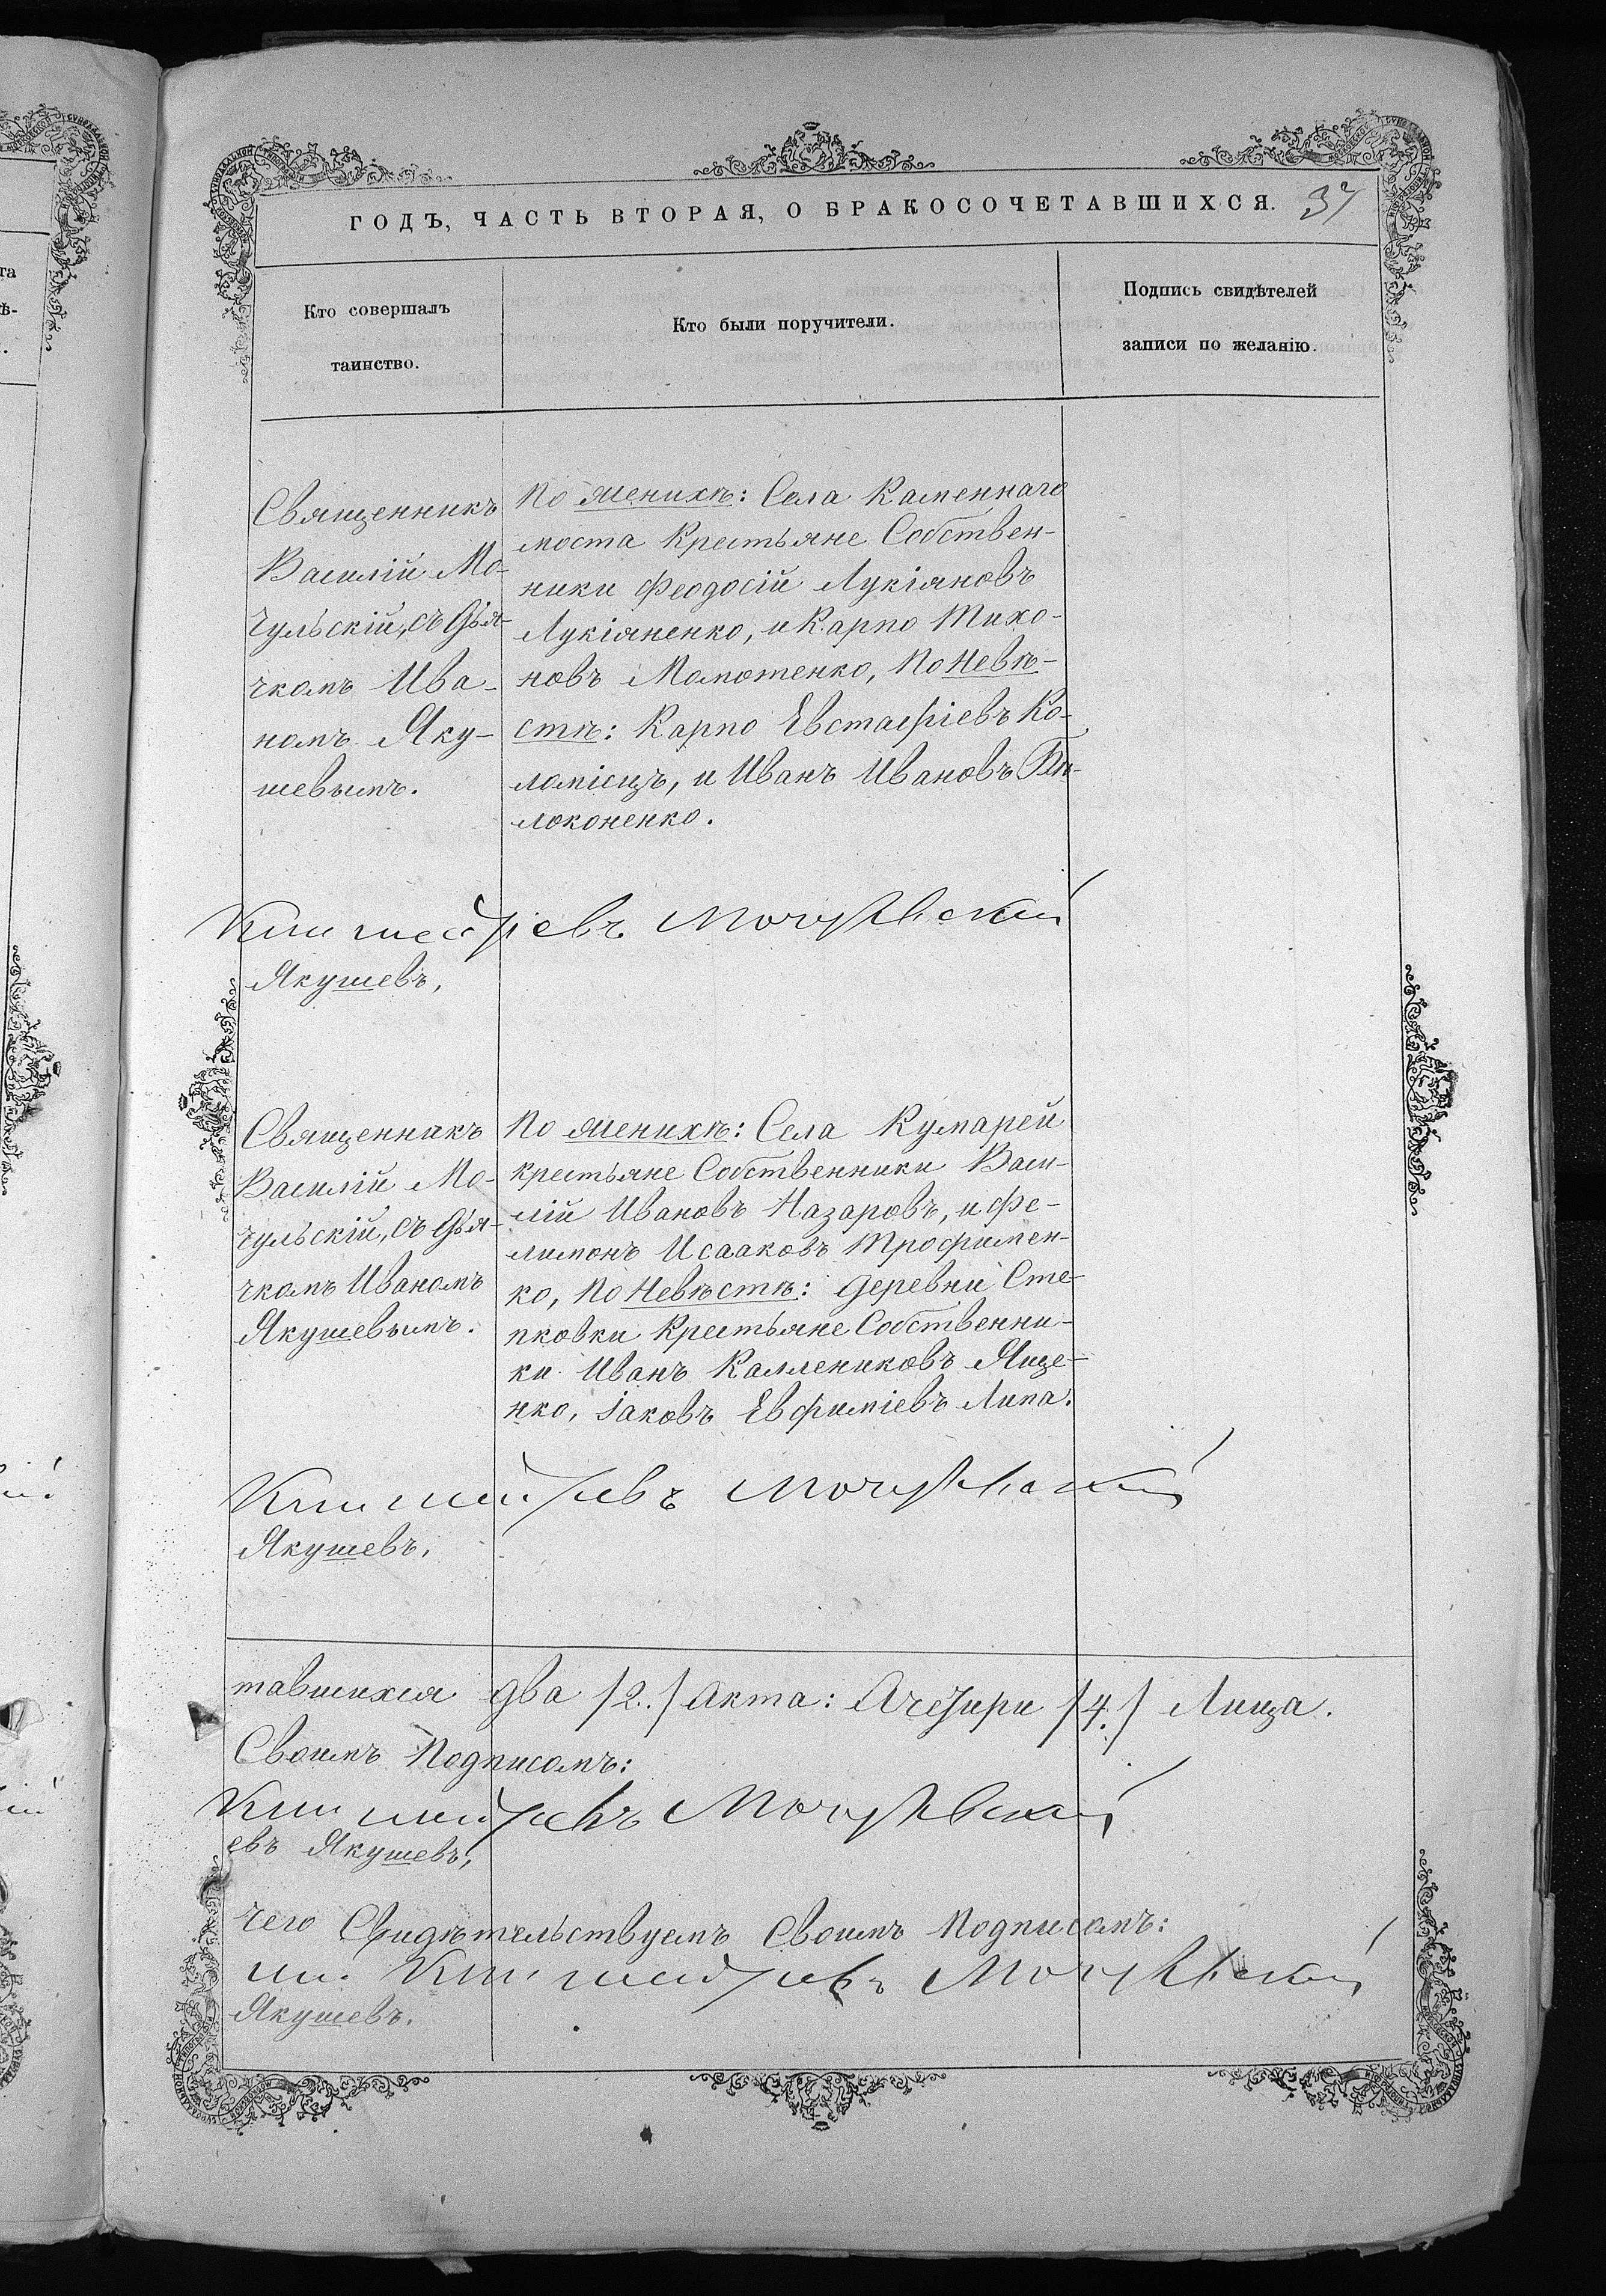 ГОДЪ, ЧАСТЬ ВТОРАЯ, О БРАКОСОЧЕТАВШИХСЯ. 37
Кто совершалъ
таинство.
Кто были поручители.
Подпись свидѣтелей
записи по желанію.
Священникъ
Василій Мо-
чульскій, съ Дья-
чкомъ Ива-
номъ Яку-
шевымъ.
По женихѣ: Села Каменнаго
моста Крестьяне Собствен-
ники Феодосій Лукіяновъ
Лукіяненко, и Карпо Тихо-
новъ Мамотенко, По Невѣ-
стѣ: Карпо Евстафіевъ Ко-
ломіецъ, и Иванъ Ивановъ Бѣ-
локоненко.
Мочульскій
Якушевъ,
Священникъ
Василій Мо-
чульскій, съ Дья-
чкомъ Иваномъ
Якушевымъ.
По женихѣ: Села Кумарей
крестьяне Собственники Васи-
лій Ивановъ Назаровъ, и Фе-
лимонъ Исааковъ Трофимен-
ко, По Невѣстѣ: Деревни Сте-
пковки Крестьяне Собственни-
ки Иванъ Каллениковъ Яще-
нко, Іаковъ Евфиміевъ Липа.
Мочульскій
Якушевъ,
тавшихся два /2./ Акта: А четыри /4./ Лица.
Своимъ Подписомъ:
Мочульскій
евъ Якушевъ,
чего Свидѣтельствуемъ Своимъ Подписомъ:
Мочульскій
Якушевъ.